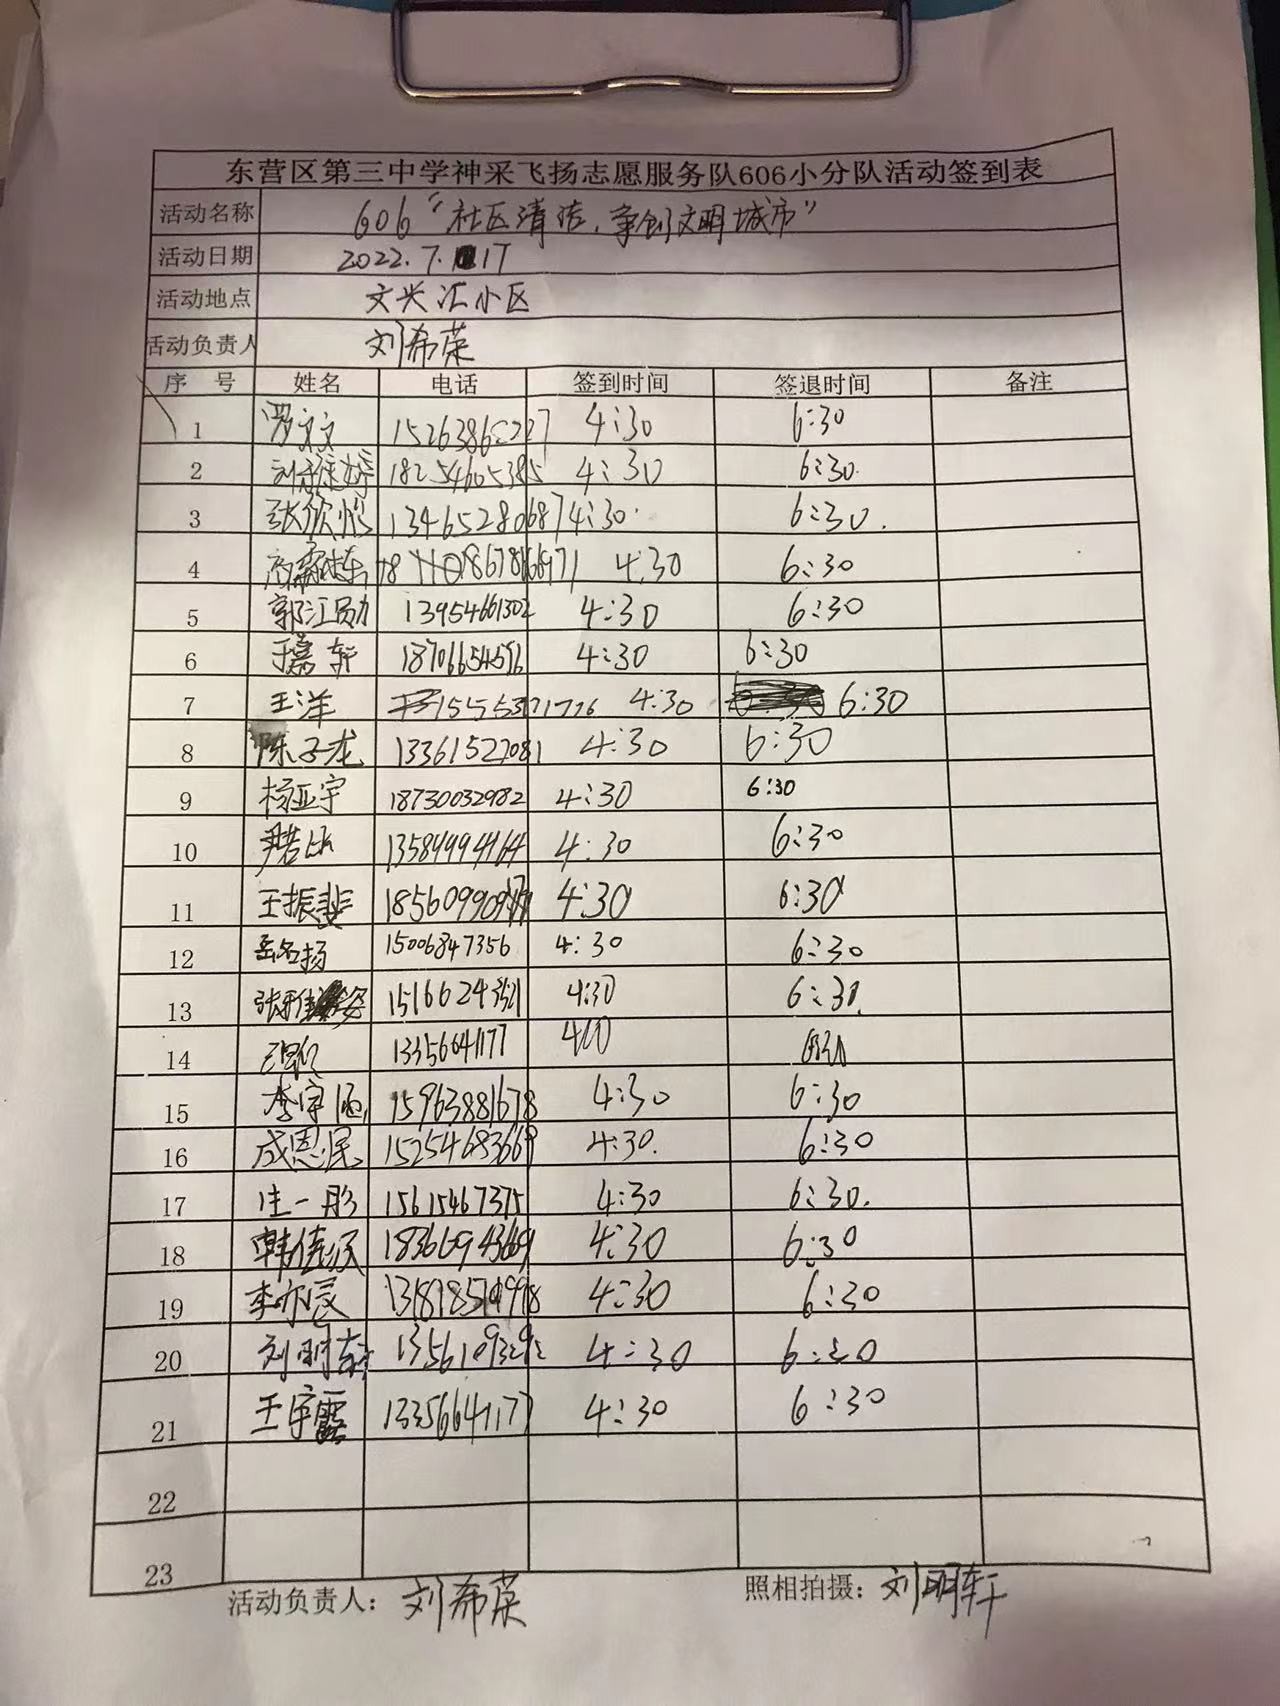 东营区第三中学神采飞扬志愿服务队606小分队活动签到表
活动名称 606“社区清洁，争创文明城市”
活动日期 2022.7.17
活动地点 文兴汇小区
活动负责人 刘希荣
序 号 姓名 电话 签到时间 签退时间 备注
1 罗文文 4:30 6:30
2 18254605385 4:30 6:30
3 13465280687 4:30 6:30
4 4:30 6:30
5 13954661302 4:30 6:30
6 于嘉轩 18706654596 4:30 6:30
7 王洋 4:30 6:30
8 陈子龙 13361527081 4:30 6:30
9 杨亚宇 18730032982 4:30 6:30
10 13589994164 4:30 6:30
11 王振斐 4:30 6:30
12 岳名扬 15006847356 4:30 6:30
13 4:30 6:30
14 13356641177
15 李宇涵 15963881678 4:30 6:30
16 成恩民 15254683669 4:30 6:30
17 15615467375 4:30 6:30
18 4:30 6:30
19 李亦辰 4:30 6:30
20 刘明轩 4:30 6:30
21 王宇霞 13356641177 4:30 6:30
22
23
活动负责人：刘希荣 照相拍摄：刘明轩